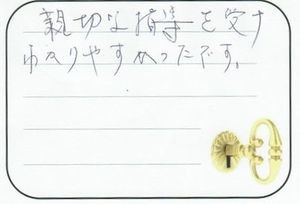 親切な指導を受け
わかりやすかったです。